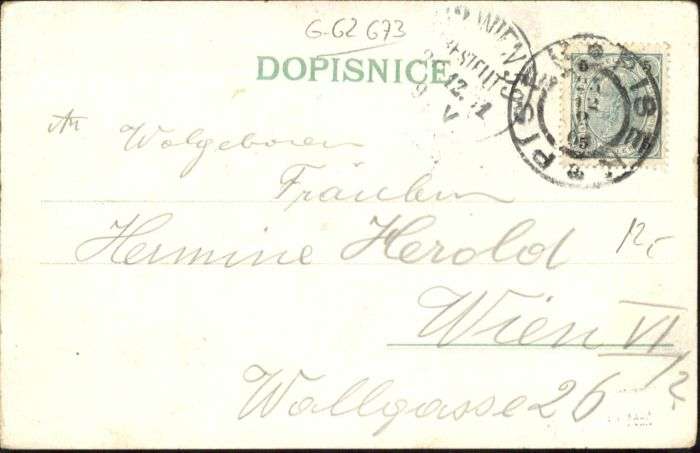 G-62 673
WIEN
BESTELLT
DOPISNICE
12
V
PISEK
5
An
Wolgeboren
Fräulein
Hermine Herold
12,-
Wien VI/2.
Wallgasse 26